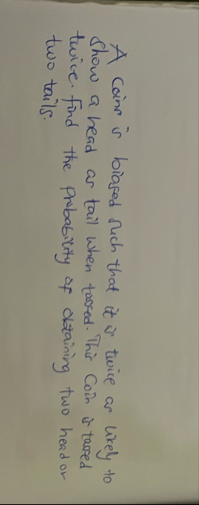 A Coin is biased such that it is twice as likely to
show a head as tail when tossed. This Coin is tossed
twice. find the probability of obtaining two head or
two tails.